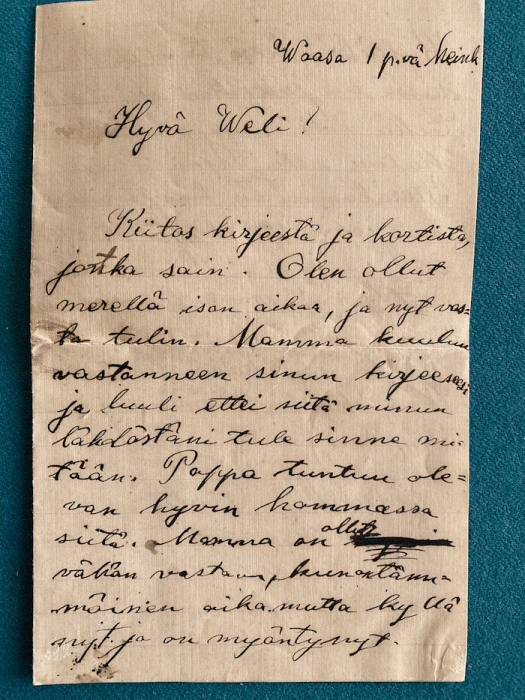 Waasa 1 p.vä Heinä
Hyvä Weli!
Kiitos kirjeestä ja kortista,
jonka sain. Olen ollut
merellä ison aikaa, ja nyt vas=
ta tulin. Mamma kuuluu
vastanneen sinun kirjeeseesi
ja luuli ettei siitä minun
lähdöstäni tule sinne mi=
tään. Pappa tuntuu ole=
van hyvin hommassa
siitä. Mamma on ollut
vähän vastaan, kun on tämm=
möinen aika, mutta kyllä
nyt jo on myöntynyt.